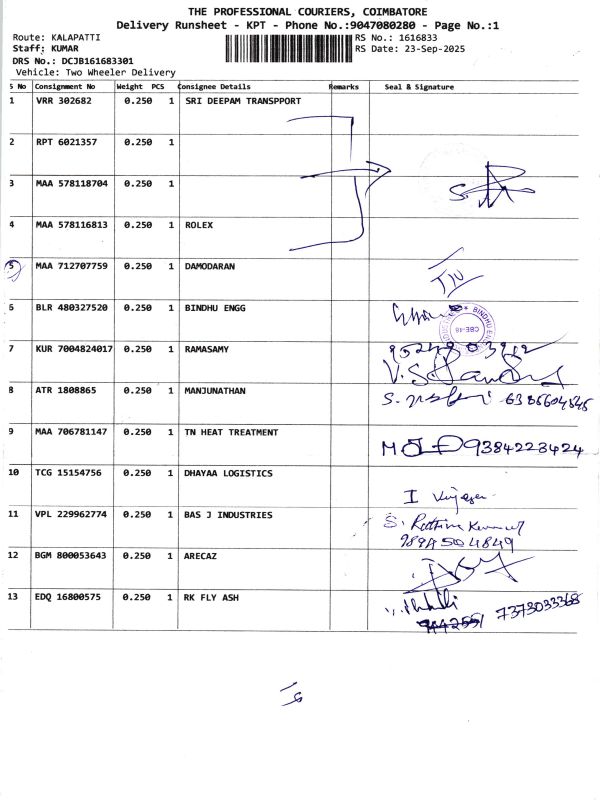 THE PROFESSIONAL COURIERS, COIMBATORE
Delivery Runsheet - KPT - Phone No.:9047080280 - Page No.:1
Route: KALAPATTI
RS No.: 1616833
Staff: KUMAR
RS Date: 23-Sep-2025
DRS No.: DCJB161683301
Vehicle: Two Wheeler Delivery
S No Consignment No Weight PCS Consignee Details Remarks Seal & Signature
1 VRR 302682 0.250 1 SRI DEEPAM TRANSPPORT
2 RPT 6021357 0.250 1
3 MAA 578118704 0.250 1
4 MAA 578116813 0.250 1 ROLEX
5 MAA 712707759 0.250 1 DAMODARAN
6 BLR 480327520 0.250 1 BINDHU ENGG
BINDHU
CBE-48
7 KUR 7004824017 0.250 1 RAMASAMY
8 ATR 1808865 0.250 1 MANJUNATHAN
9 MAA 706781147 0.250 1 TN HEAT TREATMENT
9384223424
10 TCG 15154756 0.250 1 DHAYAA LOGISTICS
11 VPL 229962774 0.250 1 BAS J INDUSTRIES
12 BGM 800053643 0.250 1 ARECAZ
13 EDQ 16800575 0.250 1 RK FLY ASH
7373033368